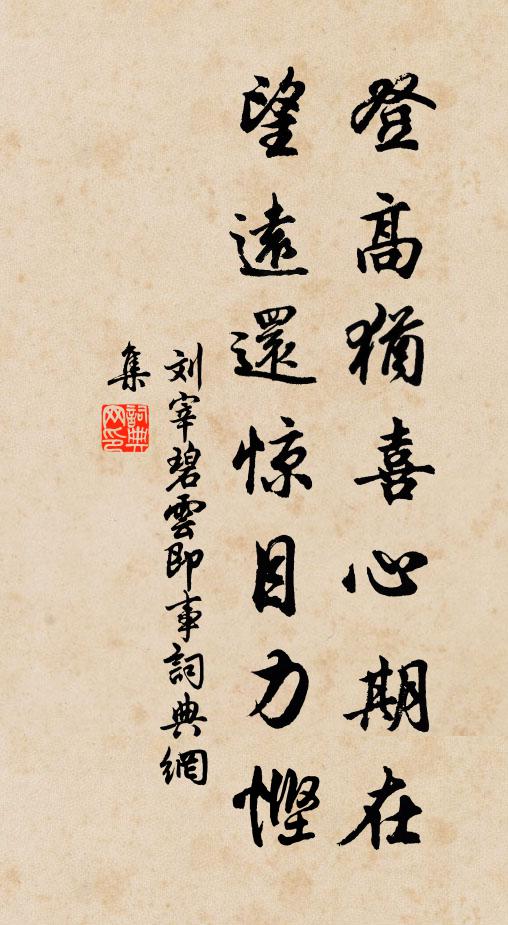 登高猶喜心期在
望遠還惊目力慳
刘宰碧雲即事詞典網
集
詞典网印